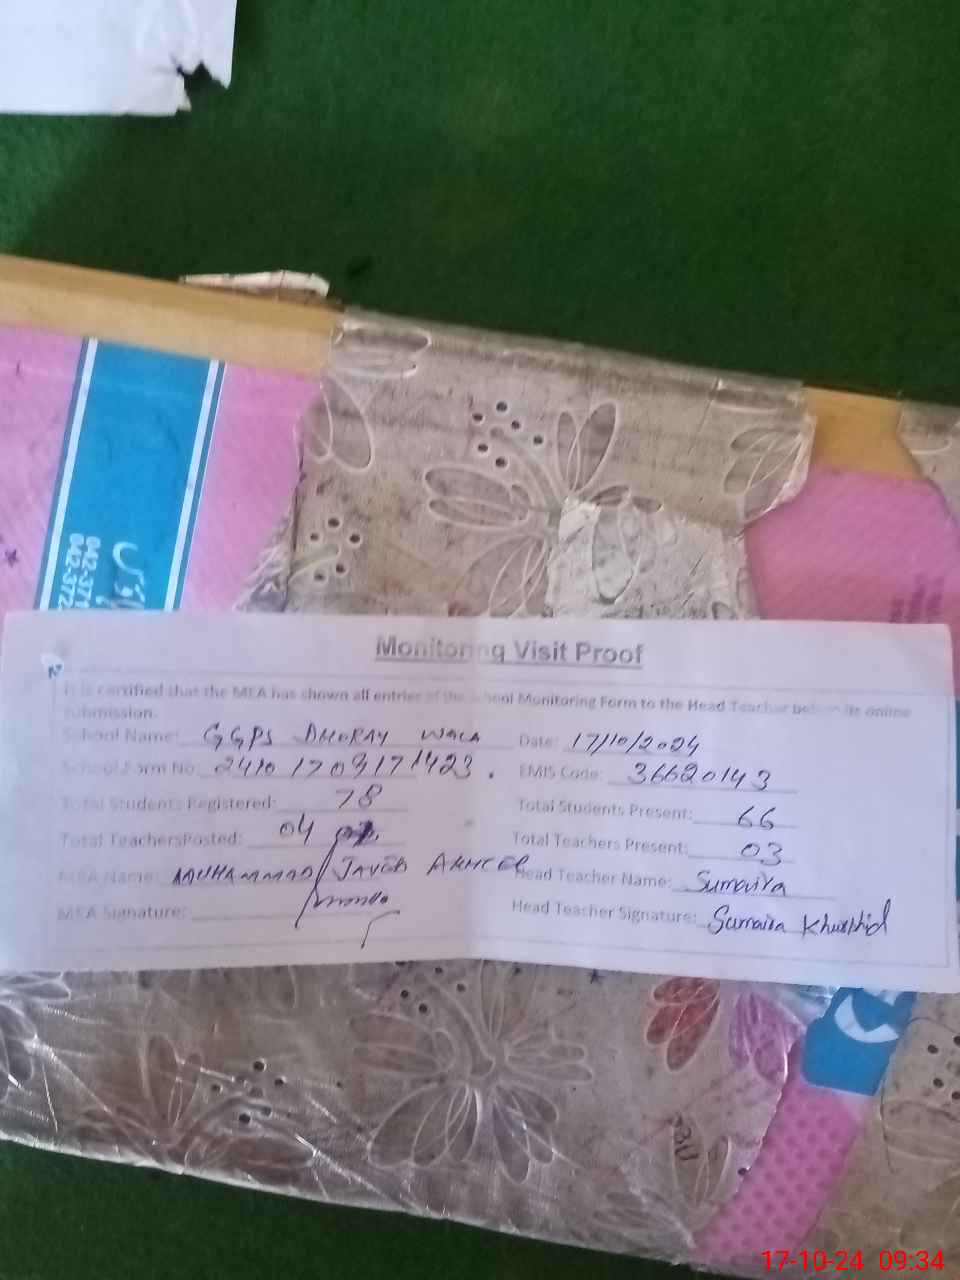 042-371
042-372
Monitoring Visit Proof
It is certified that the MEA has shown all entries of the School Monitoring Form to the Head Teacher before its online
submission.
School Name: GGPS DHORAY WALA Date: 17/10/2024
School Form No: 2410 1709171423. EMIS Code: 36620143
Total Students Registered: 78 Total Students Present: 66
Total TeachersPosted: 04 Total Teachers Present: 03
MEA Name: MUHAMMAD JAVED AHMED Head Teacher Name: Sumaira
MEA Signature: Head Teacher Signature: Sumaira Khurshid
17-10-24 09:34